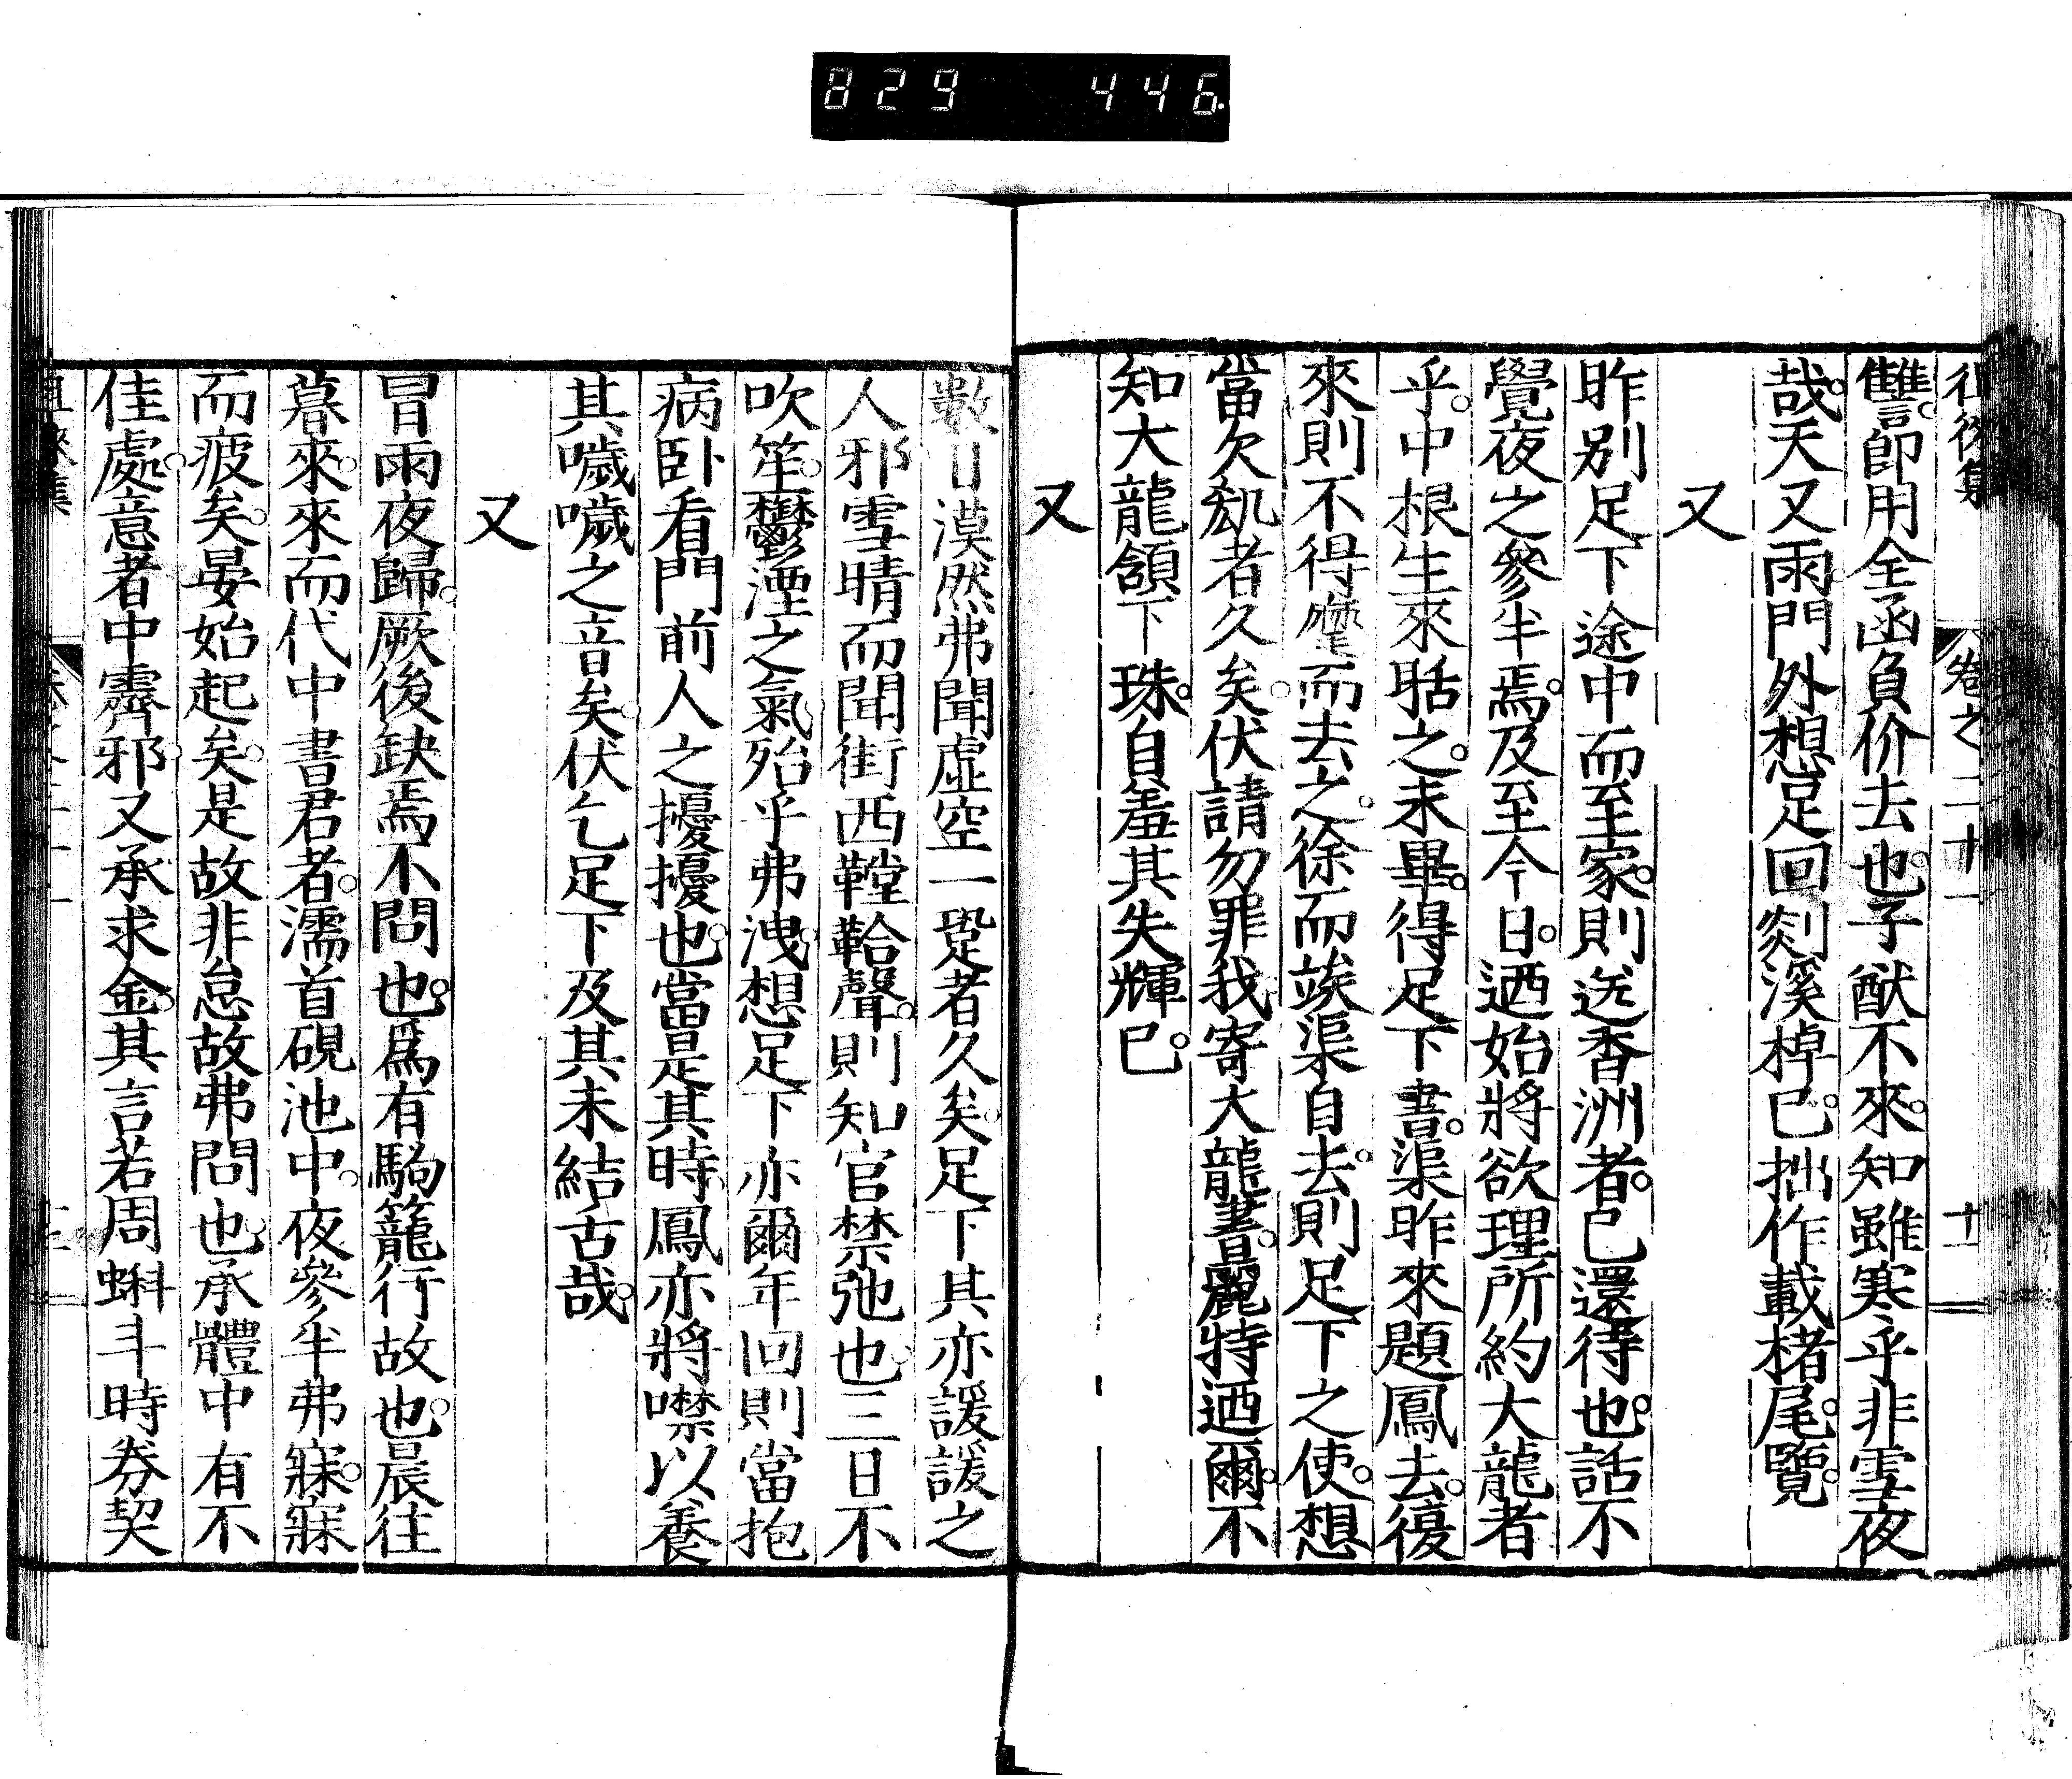 829 446
徂徠集 卷之二十一 十一
讎。卽用全函負价去也。予猷不來。知雖寒乎非雪夜
哉。天又雨。門外想足回剡溪棹已。拙作載楮尾。覽。
又
昨別足下。途中而至家。則送香洲者。已還待也。話不
覺夜之參半焉。及至今日。迺始將欲理所約大龍者
乎。中根生來聒之。未畢。得足下書。渠昨來題鳳去。復
來則不得麾而去之。徐而竢渠自去。則足下之使。想
當欠䬣者久矣。伏請勿罪我。寄大龍書。麗特迺爾。不
知大龍頷下珠。自羞其失輝已。
又
數日漠然弗聞虛空一跫者久矣。足下其亦諼諼之
人邪。雪晴而聞街西鞺鞳聲。則知官禁弛也。三日不
吹笙。鬱湮之氣。殆乎弗洩。想足下亦爾。年回則當抱
病卧看門前人之擾擾也。當是其時。鳳亦將噤以養
其噦噦之音矣。伏乞足下及其未結古哉。
又
冒雨夜歸。厥後缺焉不問也。爲有駒籠行故也。晨往
暮來。來而代中書君者。濡首硯池中。夜參半弗寐。寐
而疲矣。晏始起矣。是故非怠故弗問也。承體中有不
佳處。意者中霽邪。又承求金。其言若周蝌斗時券契